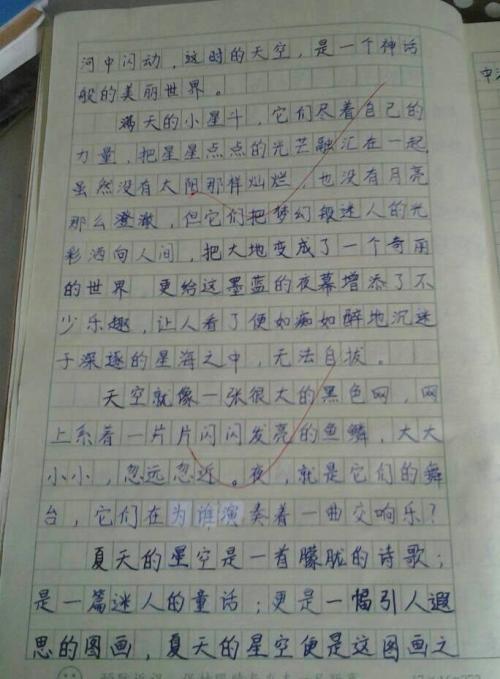 河中闪动，这时的天空，是一个神话
般的美丽世界。
满天的小星斗，它们尽着自己的
力量，把星星点点的光芒融汇在一起，
虽然没有太阳那样灿烂，也没有月亮
那么澄澈，但它们把梦幻般迷人的光
彩洒向人间，把大地变成了一个奇丽
的世界，更给这墨蓝的夜幕增添了不
少乐趣，让人看了便如痴如醉地沉迷
于深邃的星海之中，无法自拔。
天空就像一张很大的黑色网，网
上系着一片片闪闪发亮的鱼鳞，大大
小小，忽远忽近。夜，就是它们的舞
台，它们在为谁演奏着一曲交响乐？
夏天的星空是一首朦胧的诗歌；
是一篇迷人的童话；更是一幅引人遐
思的图画，夏天的星空便是这图画之